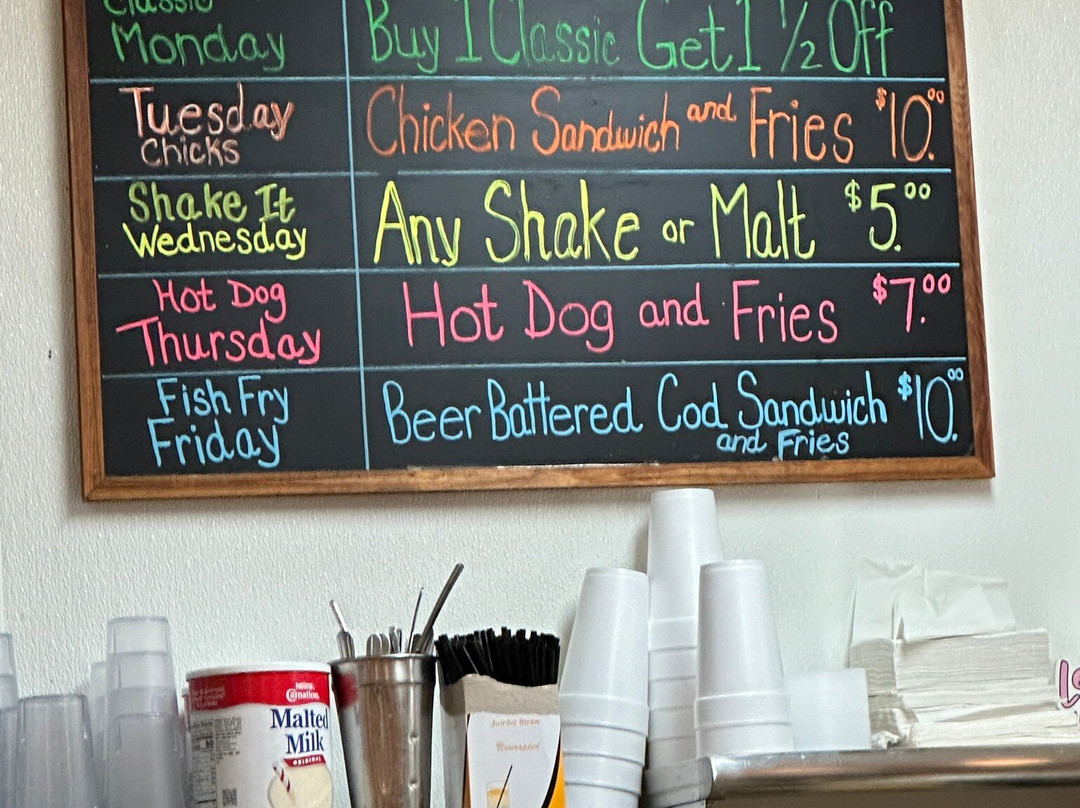 Classic
Monday
Buy 1 Classic Get 1 ½ Off
Tuesday
Chicks
Chicken Sandwich and Fries $10.00
Shake It
Wednesday
Any Shake or Malt $5.00
Hot Dog
Thursday
Hot Dog and Fries $7.00
Fish Fry
Friday
Beer Battered Cod Sandwich $10.00
and Fries
Nestle
Carnation
Malted
Milk
ORIGINAL
Jumbo Straw